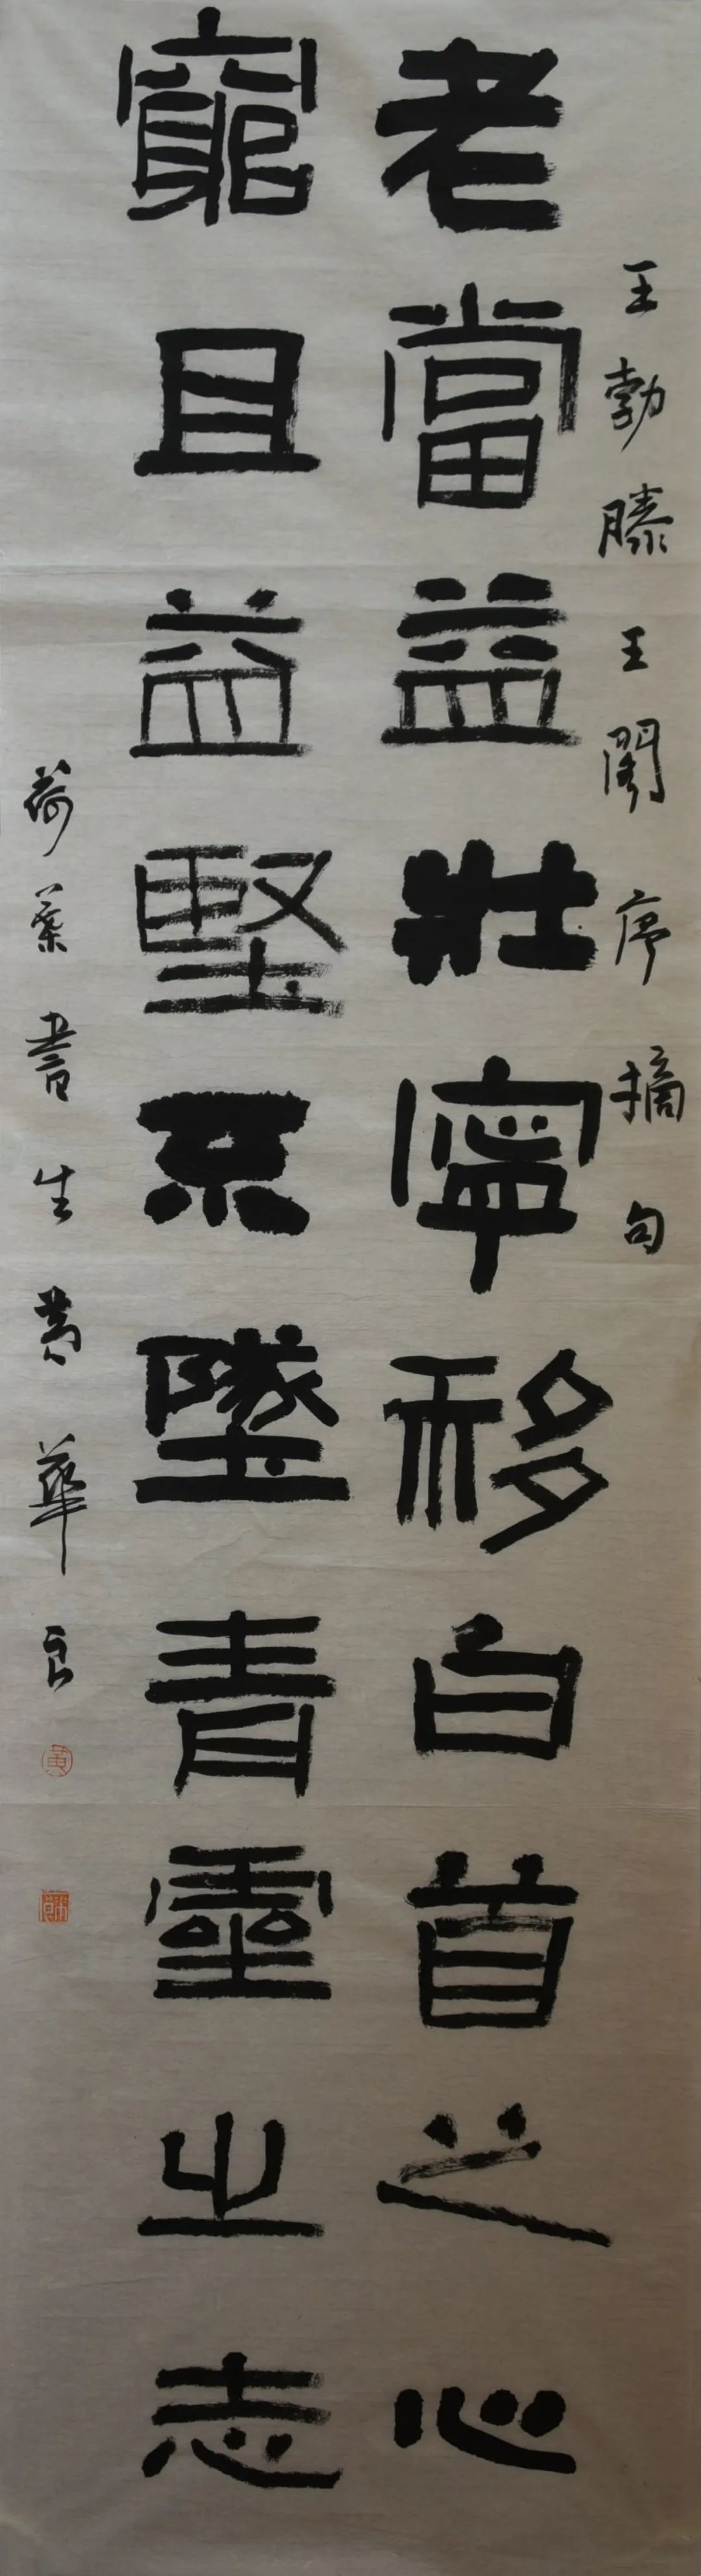 王勃滕王閣序摘句
老當益壯寧移白首之心
窮且益堅不墜青雲之志
荷葉書生黃華良
黃